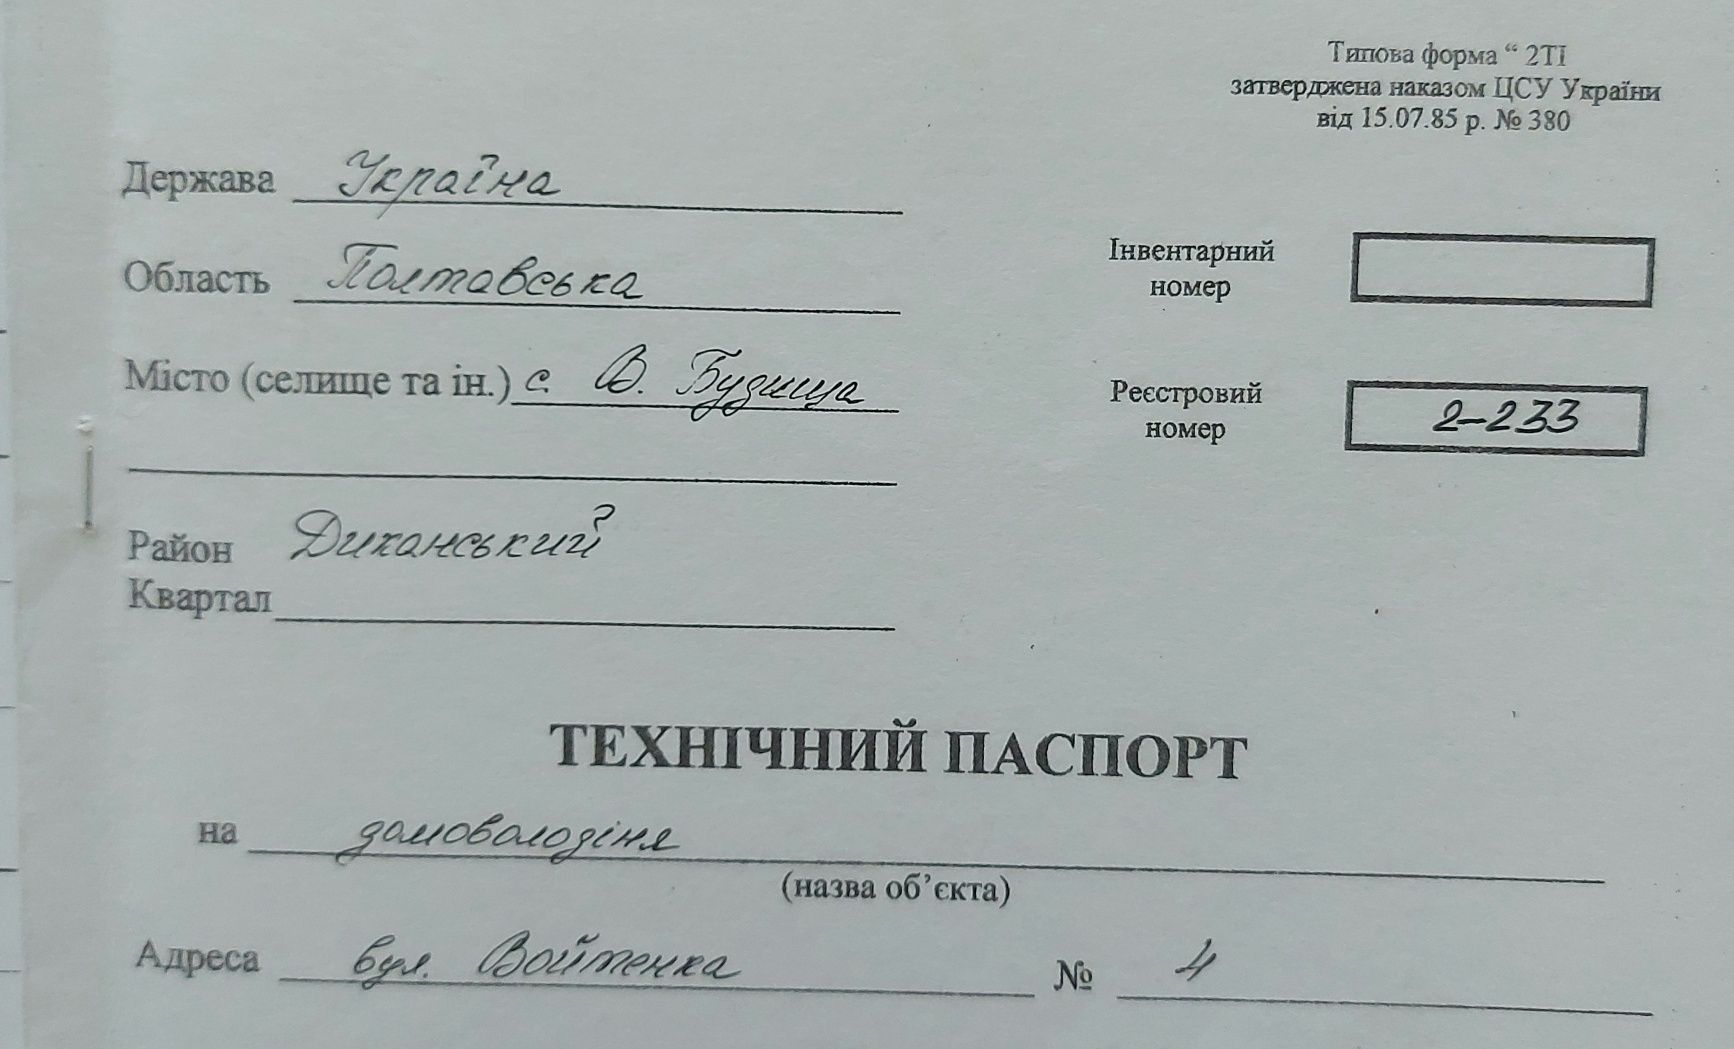 Типова форма “ 2ТІ
затверджена наказом ЦСУ України
від 15.07.85 р. № 380
Держава Україна
Область Полтавська
Місто (селище та ін.) с. В. Будища
Район Диканський
Квартал
Інвентарний
номер
Реєстровий
номер 2-233
ТЕХНІЧНИЙ ПАСПОРТ
на домоволодіня
(назва об’єкта)
Адреса вул. Войтенка № 4